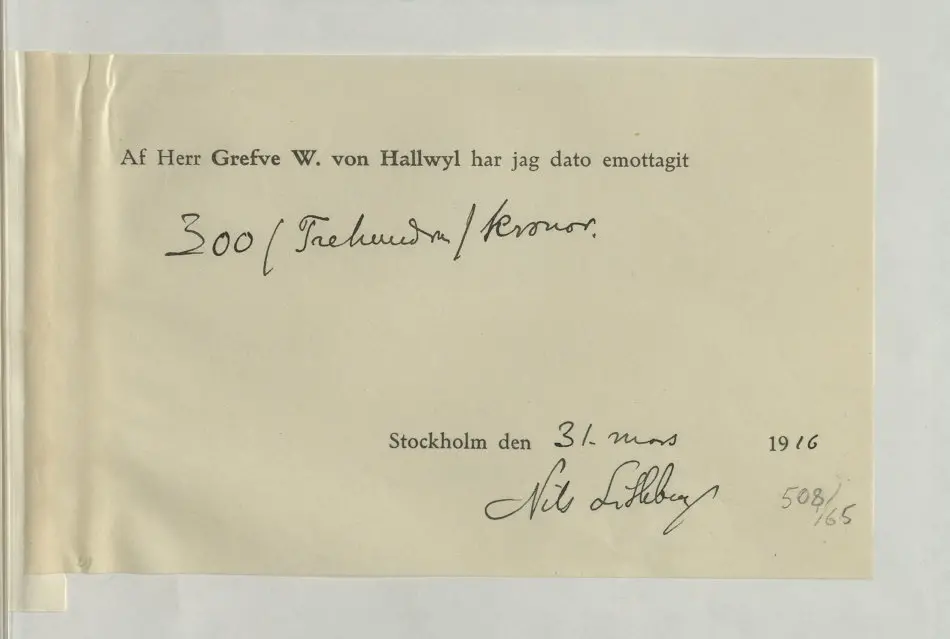 Af Herr Grefve W. von Hallwyl har jag dato emottagit
300 / Trehundra / kronor.
Stockholm den 31. mars 1916
Nils Lithberg
508/165